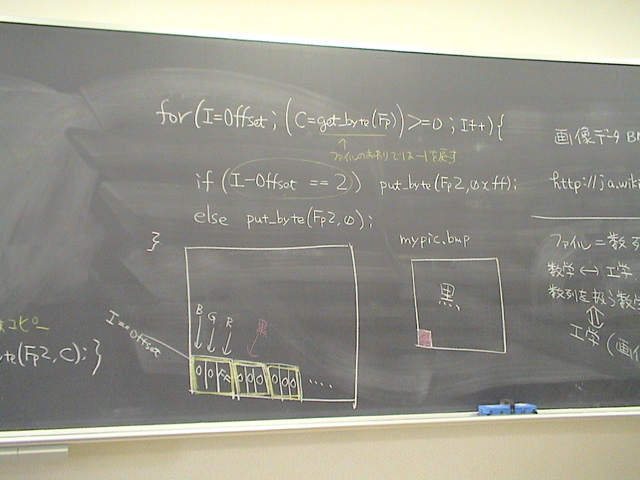 for(I=Offset; (C=get_byte(Fp))>=0; I++){
↑
ファイルのおわりでは-1を戻す
if (I-Offset == 2) put_byte(Fp2,0xff);
else put_byte(Fp2,0);
}
mypic.bmp
黒
B G R
黒
I==Offset
0 0 ff 0 0 0 0 0 0 ....
コピー
te(Fp2,C);}
画像データBM
http://ja.wiki
ファイル=数列
数学↔工学
数列を扱う数学
⇕
工学(画像